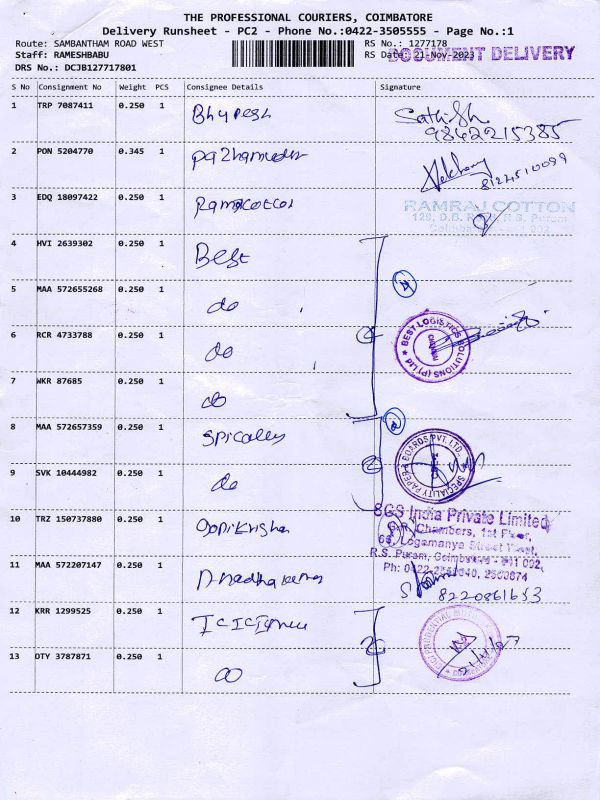 THE PROFESSIONAL COURIERS, COIMBATORE
Delivery Runsheet - PC2 - Phone No.:0422-3505555 - Page No.:1
Route: SAMBANTHAM ROAD WEST RS No.: 1277178
Staff: RAMESHBABU RS Date: 21-Nov-2023 DOCUMENT DELIVERY
DRS No.: DCJB127717801
S No Consignment No Weight PCS Consignee Details Signature
1 TRP 7087411 0.250 1 Bhupesh Sathish
9842215385
2 PON 5204770 0.345 1
3 EDQ 18097422 0.250 1 RAMRAJ COTTON
4 HVI 2639302 0.250 1 Best
5 MAA 572655268 0.250 1 do
6 RCR 4733788 0.250 1 do BEST LOGISTICS SOLUTIONS (P) Ltd
7 WKR 87685 0.250 1 do
8 MAA 572657359 0.250 1 SPECIALITY PAPER & BOARDS PVT. LTD.
9 SVK 10444982 0.250 1 do
10 TRZ 150737880 0.250 1 Gopikrishna SGS India Private Limited
Chambers, 1st Floor,
Logamanya Street West,
R.S. Puram, Coimbatore
11 MAA 572207147 0.250 1
8220861653
12 KRR 1299525 0.250 1
13 OTY 3787871 0.250 1 do